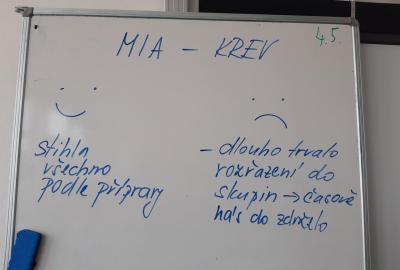 MIA - KREV
4.5.
stihla
všechno
podle přípravy
- dlouho trvalo
rozřazení do
skupin → časově
nás to zdrželo